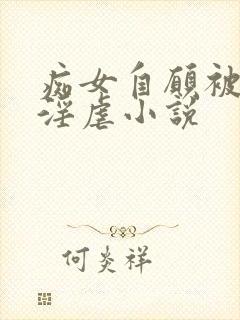 痴女自愿被
淫虐小说
何炎祥